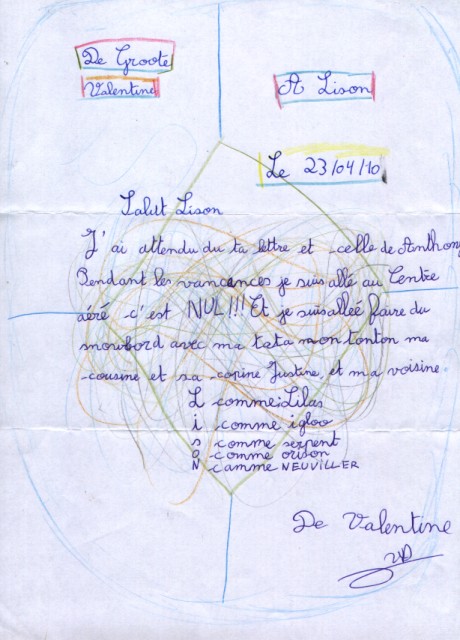 De Groote
Valentine
A Lison
Le 23/04/10
Salut Lison
J'ai attendu du ta lettre et celle de Anthony
Pendant les vancances je suis allé au Centre
aéré c'est NUL!!! Et je suis allée faire du
snowbord avec ma tata mon tonton ma
cousine et sa copine Justine, et ma voisine.
L comme:Lilas
i comme igloo
s comme serpent
o comme orison
N camme NEUVILLER
De Valentine
VD